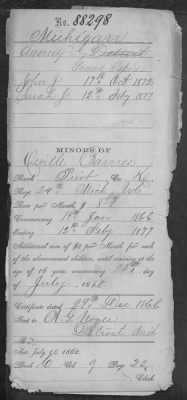 No. 88298
Michigan
Agency Detroit
John J. 17th Oct 1872
Sarah J. 12th Feby 1877
MINORS OF
Orville Barnes
Rank Privt, Co. K,
Reg. 24th Mich Vols
Rate per Month, $ 8
Commencing 18th Jan 1866
Ending 12th Feby 1877
Additional sum of $2 per Month for each of
the abovenamed children, until arriving at the
age of 16 years commencing 25th day
of July, 1866.
Certificate dated 27th Dec 1866
Sent to A. G. Noyes
Detroit Mich
Act July 14, 1862.
Book C Vol. 9 Page 22
Clerk.